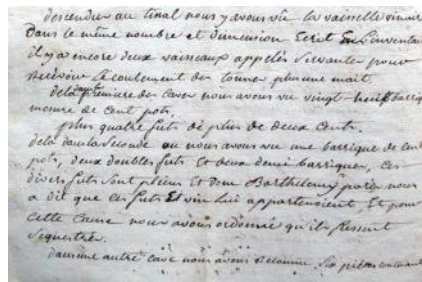 descendu au tinal nous y avons vû la vaisselle vinaire
Dans le même nombre et dimension Ecrit En L'inventai
il y a encore deux vaisseaux appelés servantes pour
recevoir le coulement des tonnes plus une mait.
delà dans la premiere des caves nous avons vu vingt-neuf barriq
mesure de cent pots,
plus quatre futs de plus de deux cent.
delà dans la seconde ou nous avons vu une barrique de cent
pots, deux doubles futs et deux demi barriques, ces
divers futs sont pleins et dom Barthelemy noir nous
a dit que ces futs Et vin Lui appartenoient, Et pour
cette Cause nous avons ordonné qu'ils fussent
sequestrés.
dans une autre cave nous avons reconnu six pièces contenant